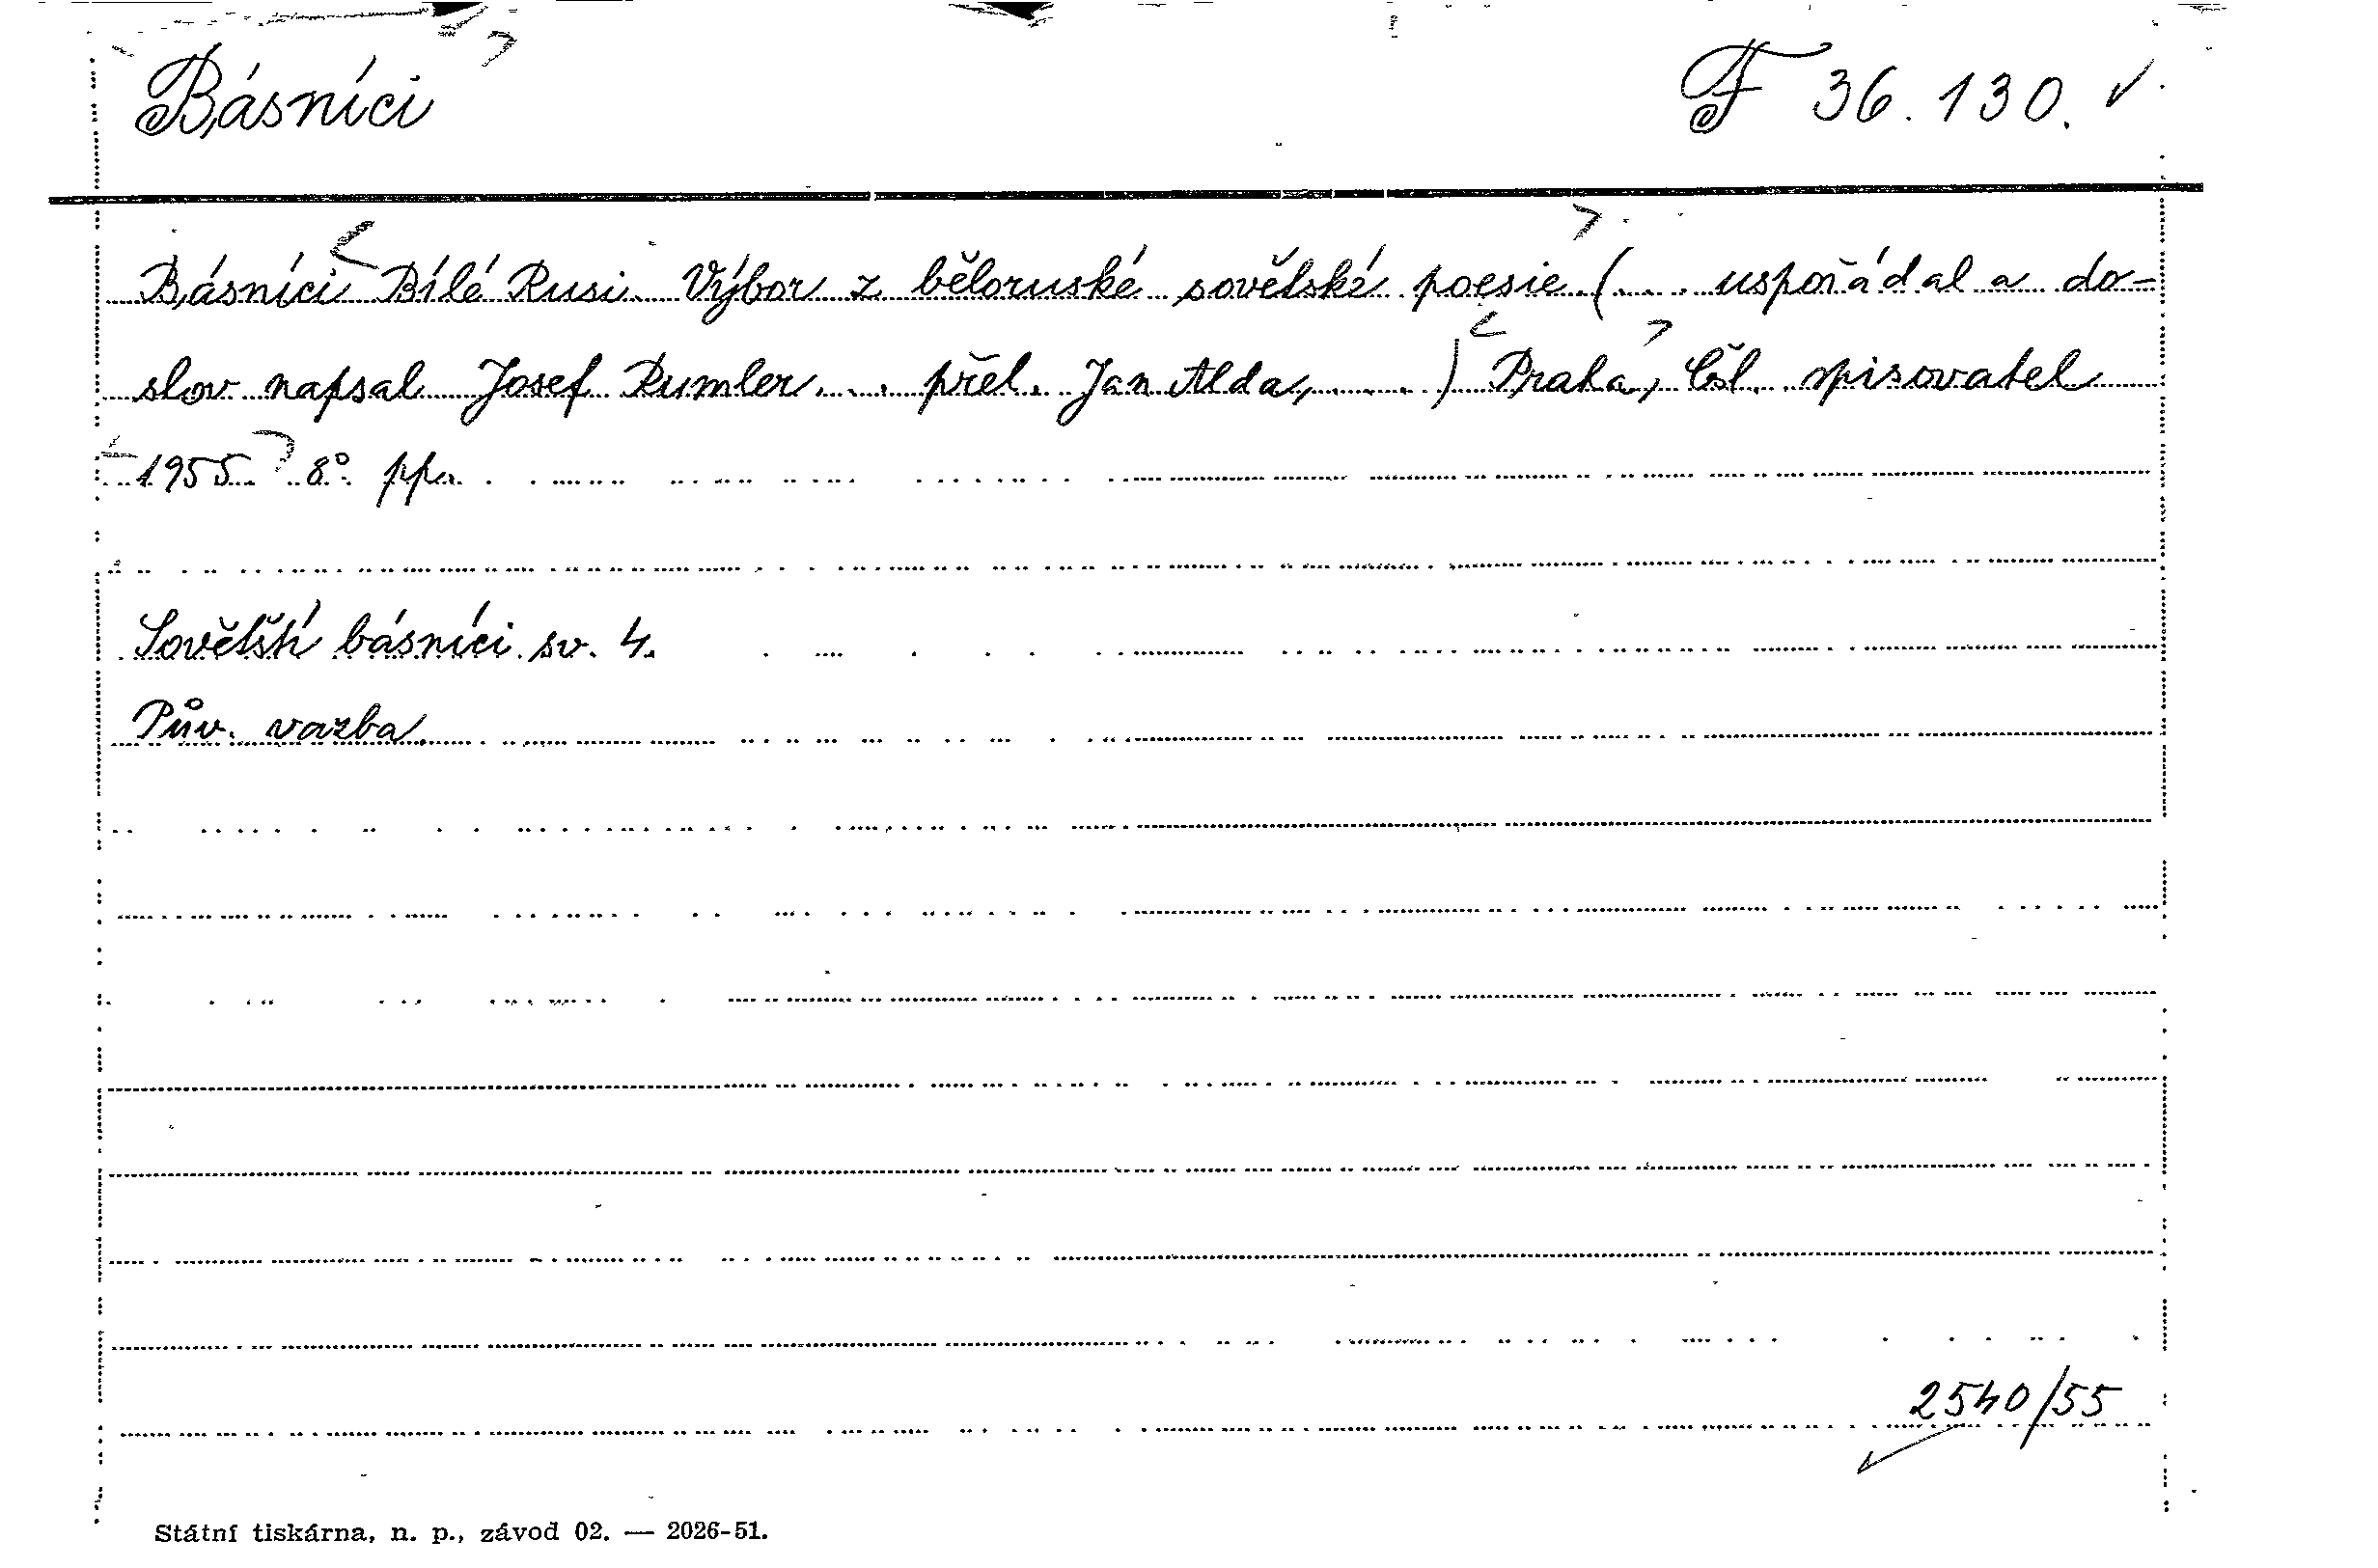 Básníci F 36.130.
Básníci Bílé Rusi. Výbor z běloruské sovětské poesie (... uspořádal a do-
slov napsal Josef Rumler... přel. Jan Alda, ...) Praha, Čsl. spisovatel
1955. 8° pp.
Sovětští básníci sv. 4.
Pův. vazba
2540/55
Státní tiskárna, n. p., závod 02. — 2026-51.